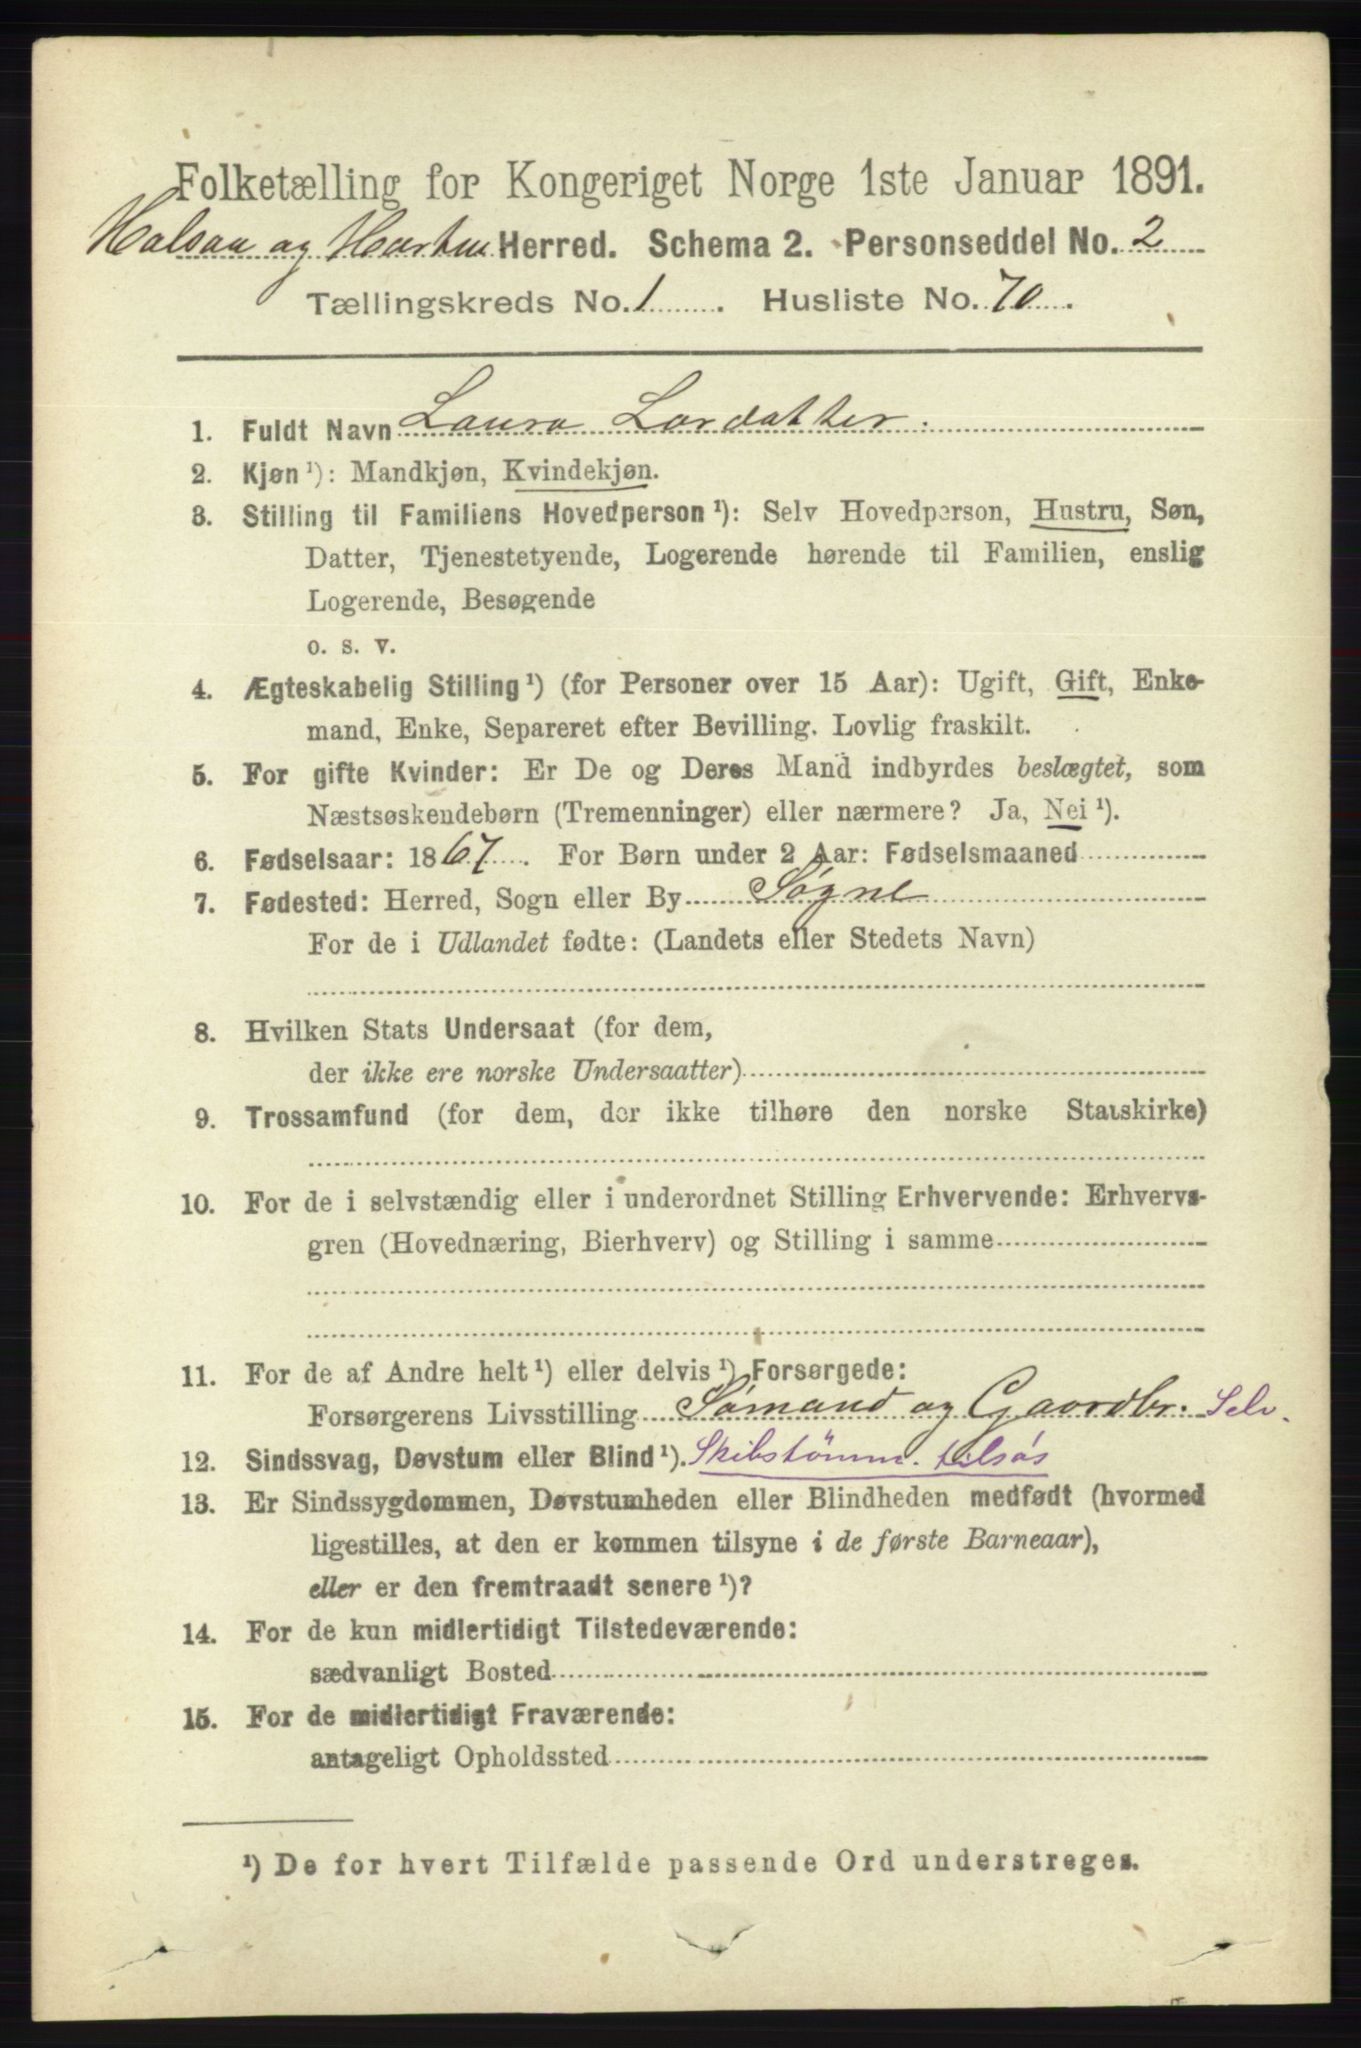 Folketælling for Kongeriget Norge 1ste Januar 1891.
Halsaa og Hartm Herred. Schema 2. Personseddel No. 2
Tællingskreds No. 1. Husliste No. 70.
1. Fuldt Navn Laura Lardatter.
2. Kjøn ¹): Mandkjøn, Kvindekjøn.
3. Stilling til Familiens Hovedperson ¹): Selv Hovedperson, Hustru, Søn,
Datter, Tjenestetyende, Logerende hørende til Familien, enslig
Logerende, Besøgende
o. s. v.
4. Ægteskabelig Stilling ¹) (for Personer over 15 Aar): Ugift, Gift, Enke-
mand, Enke, Separeret efter Bevilling. Lovlig fraskilt.
5. For gifte Kvinder: Er De og Deres Mand indbyrdes beslægtet, som
Næstsøskendebørn (Tremenninger) eller nærmere? Ja, Nei ¹).
6. Fødselsaar: 1867. For Børn under 2 Aar: Fødselsmaaned
7. Fødested: Herred, Sogn eller By Søgne
For de i Udlandet fødte: (Landets eller Stedets Navn)
8. Hvilken Stats Undersaat (for dem,
der ikke ere norske Undersaatter)
9. Trossamfund (for dem, der ikke tilhøre den norske Statskirke)
10. For de i selvstændig eller i underordnet Stilling Erhvervende: Erhvervs-
gren (Hovednæring, Bierhverv) og Stilling i samme
11. For de af Andre helt ¹) eller delvis ¹) Forsørgede:
Forsørgerens Livsstilling Sømand og Gaardbr. Selv.
12. Sindssvag, Døvstum eller Blind ¹). Skibstømm. tilsøs
13. Er Sindssygdommen, Døvstumheden eller Blindheden medfødt (hvormed
ligestilles, at den er kommen tilsyne i de første Barneaar),
eller er den fremtraadt senere ¹)?
14. For de kun midlertidigt Tilstedeværende:
sædvanligt Bosted
15. For de midlertidigt Fraværende:
antageligt Opholdssted
¹) De for hvert Tilfælde passende Ord understreges.